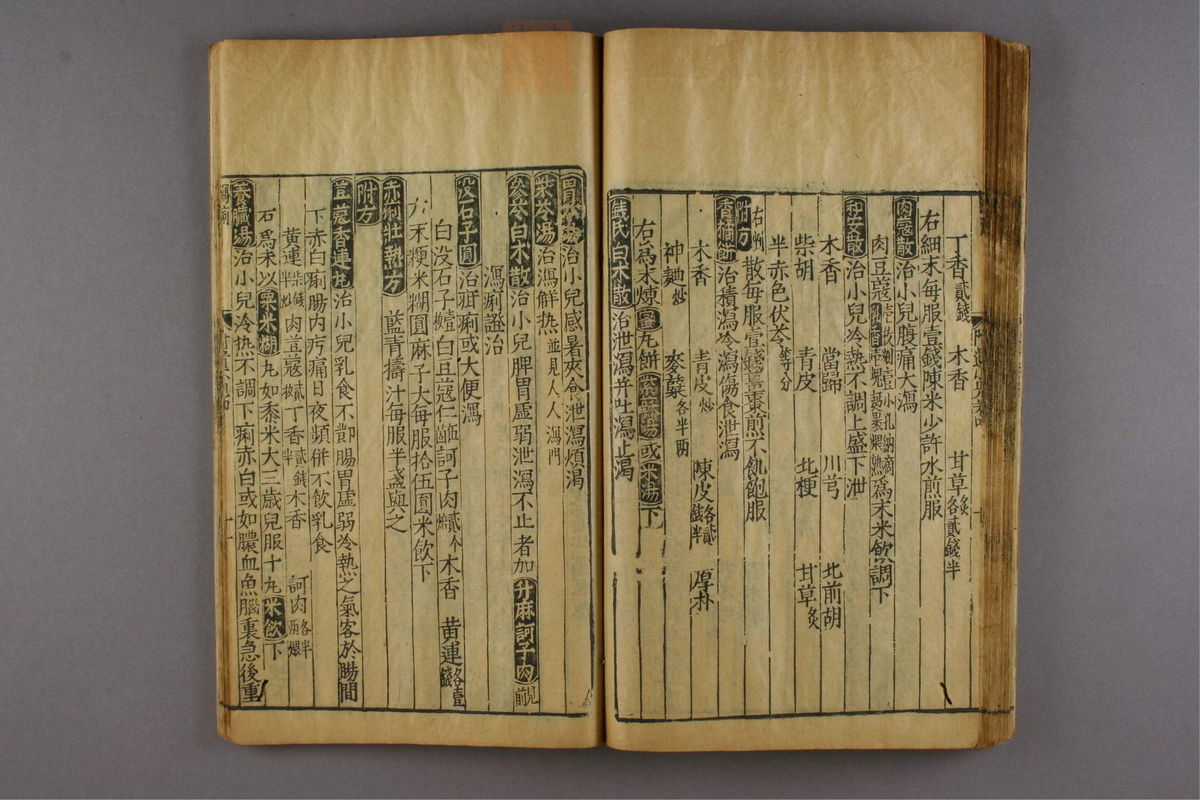 丁香貳錢 木香 甘草炙各貳錢半
右細末每服壹錢陳米少許水煎服
肉蔻散治小兒腹痛大瀉
肉豆蔻 爲末米飲調下
和安散治小兒冷熱不調上盛下泄
木香 當歸 川芎 北前胡
柴胡 青皮 北梗 甘草炙
半赤色伏苓等分
右㕮散每服壹錢薑棗煎不飢飽服
附方
香補餅治積瀉冷瀉傷食泄瀉
木香 青皮炒 陳皮各貳錢半 厚朴
神麯炒 麥蘖各半兩
右爲末煉蜜丸餅紫蘇湯或米湯下
錢氏白朮散治泄瀉并吐瀉止渴
治小兒感暑夾食泄瀉煩渴
柴苓湯治瀉解热並見大人瀉門
參苓白朮散治小兒脾胃虛弱泄瀉不止者加升麻訶子肉
瀉痢證治
没石子圓治疳痢或大便瀉
白没石子壹枚 白豆蔻仁伍箇 訶子肉貳个煨 木香 黄連各壹錢
右末粳米糊圓麻子大每服拾伍圓米飲下
赤痢壯熱方 藍青擣汁每服半盞與之
附方
豆蔻香連丸治小兒乳食不節腸胃虛弱冷熱之氣客於腸間
下赤白痢腸内疞痛日夜頻併不飲乳食
黄連柒錢半炒 肉荳蔻貳枚 丁香貳錢半 木香 訶肉各半兩煨
右爲末以粟米糊丸如黍米大三歲兒服十丸米飲下
養臟湯治小兒冷热不調下痢赤白或如膿血魚腦裏急後重
瀉痢